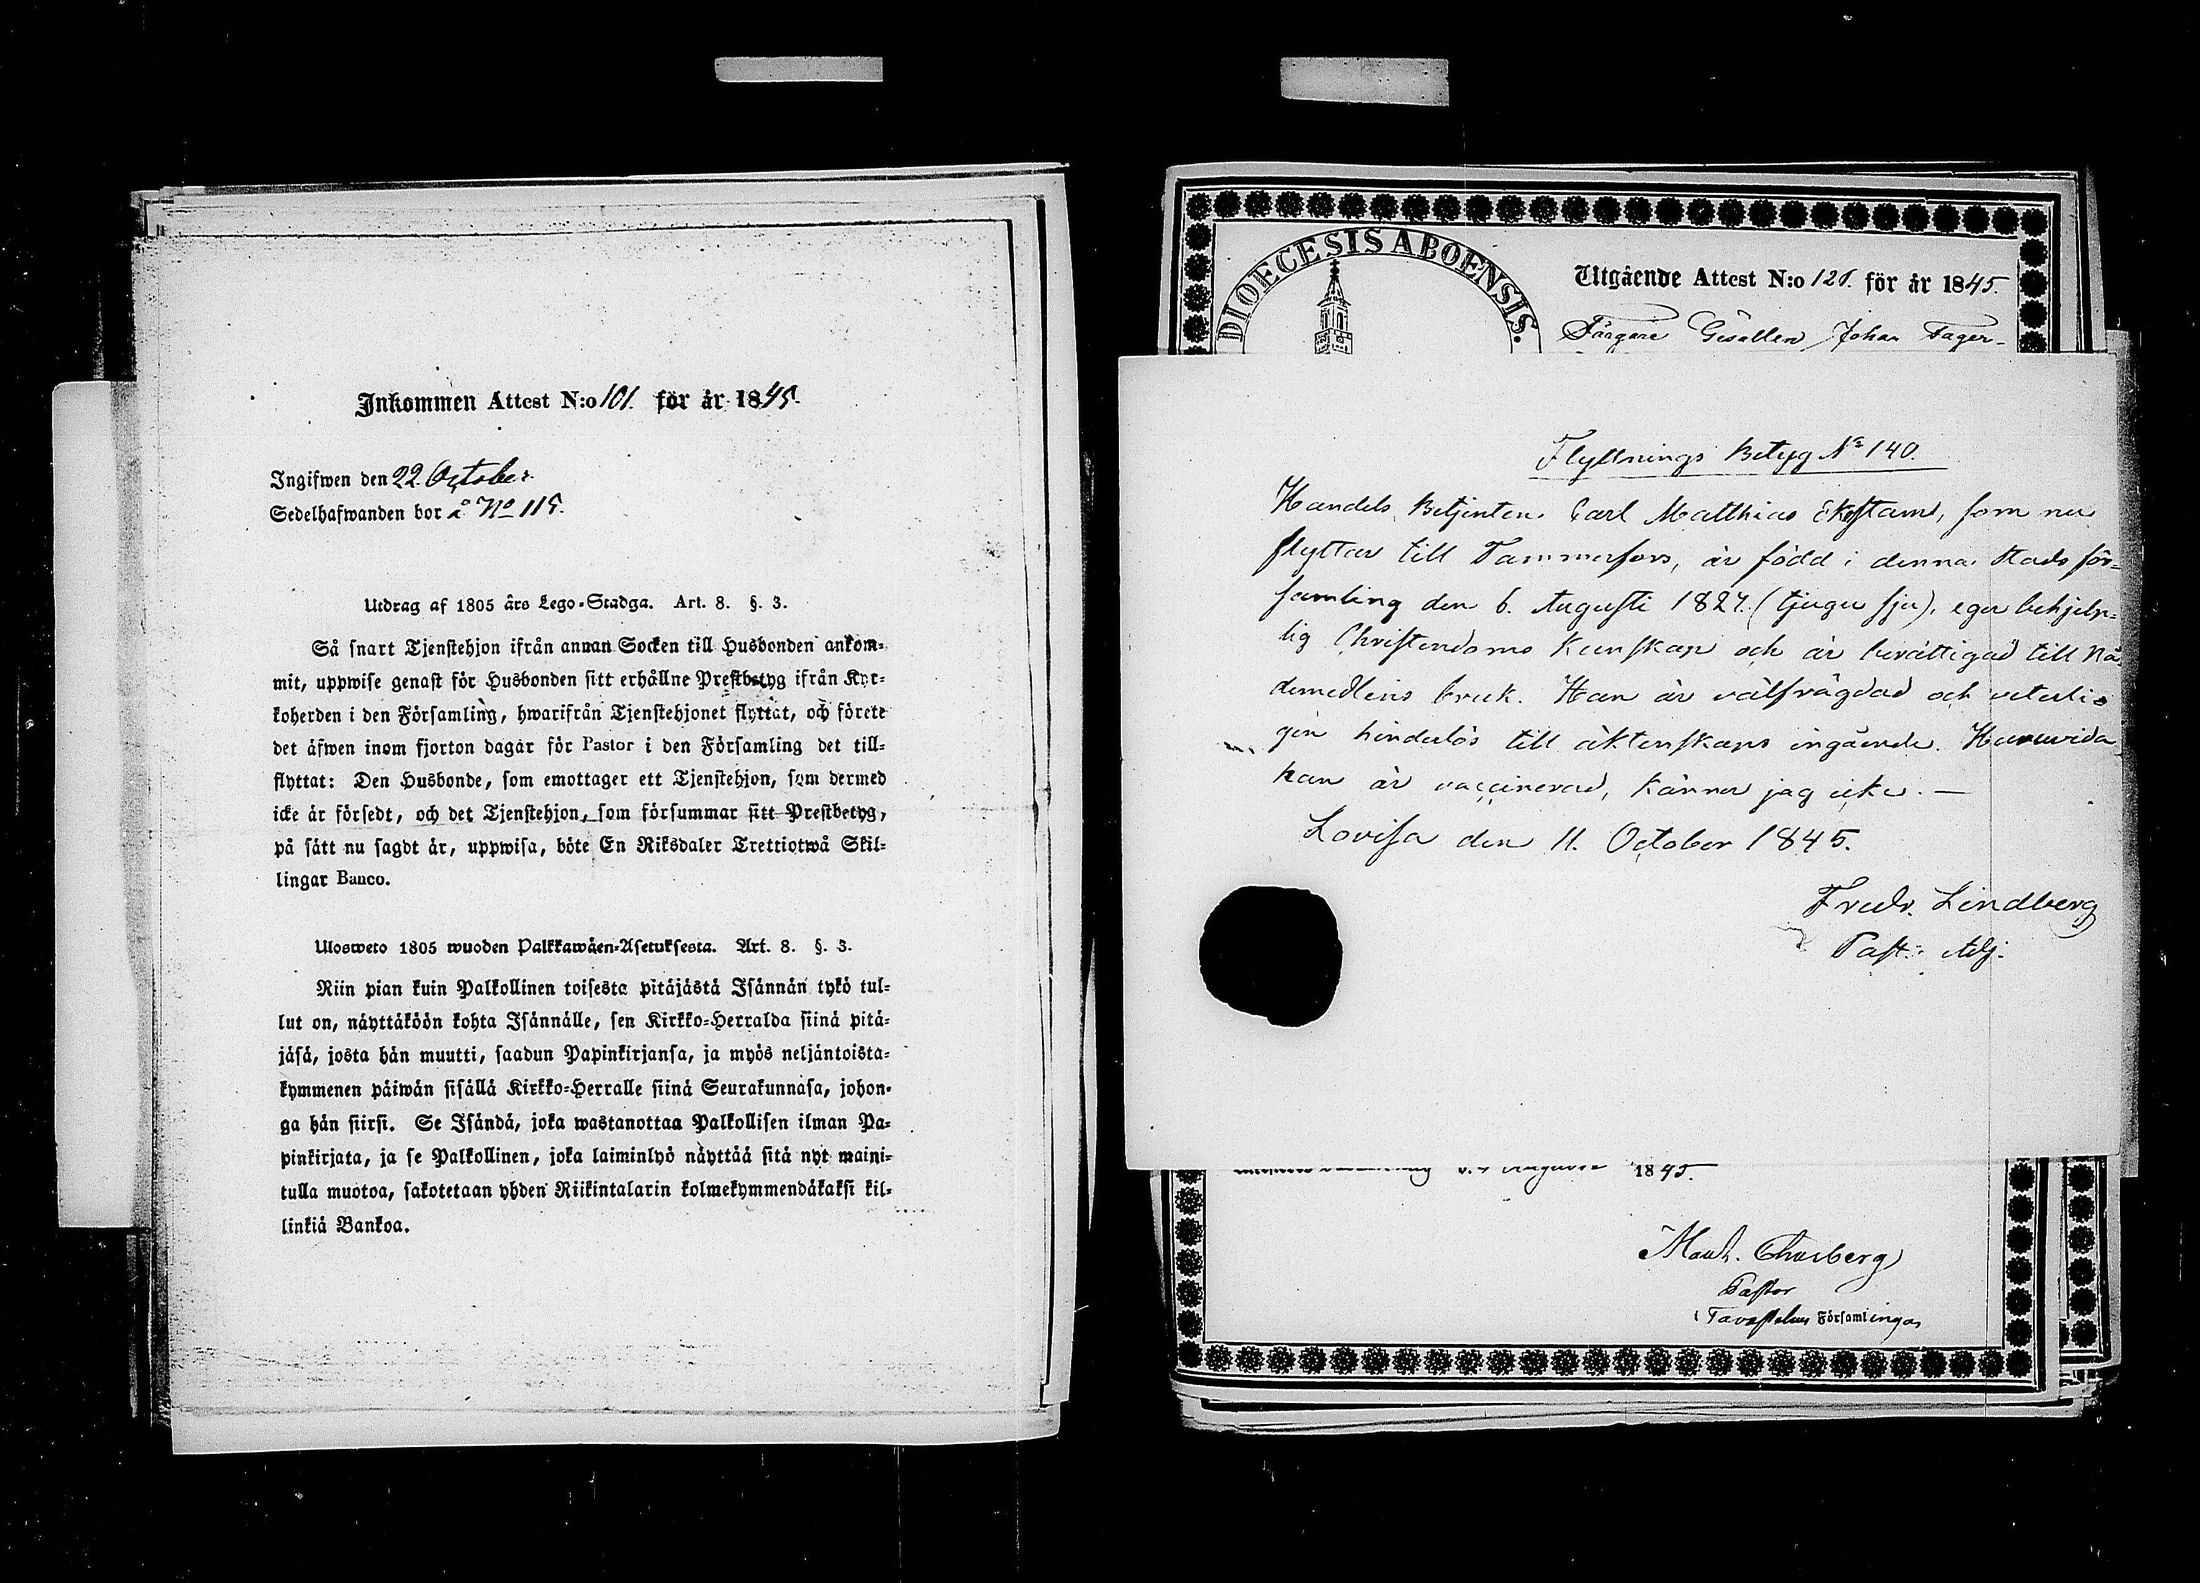 Inkommen Attest N:o 101. för år 1845.
Ingifwen den 22 October
Sedelhafwanden bor å No 115.
Utdrag af 1805 års Lego-Stadga. Art. 8. §. 3.
Så snart Tjenstehjon ifrån annan Socken till Husbonden ankom-
mit, uppwise genast för Husbonden sitt erhållne Prestbetyg ifrån Kyr-
koherden i den Församling, hwarifrån Tjenstehjonet flyttat, och förete
det äfwen inom fjorton dagar för Pastor i den Församling det till-
flyttat: Den Husbonde, som emottager ett Tjenstehjon, som dermed
icke är försedt, och det Tjenstehjon, som försummar sitt Prestbetyg,
på sätt nu sagdt är, uppwisa, böte En Riksdaler Trettiotwå Skil-
lingar Banco.
Ulosweto 1805 wuoden Palkkawäen-Asetuksesta. Art. 8. §. 3.
Niin pian kuin Palkollinen toisesta pitäjästä Isännän tykö tul-
lut on, näyttäköön kohta Isännälle, sen Kirkko-Herralda siinä pitä-
jäsä, josta hän muutti, saadun Papinkirjansa, ja myös neljäntoista-
kymmenen päiwän sisällä Kirkko-Herralle siinä Seurakunnasa, johon-
ga hän siirsi. Se Isändä, joka wastanottaa Palkollisen ilman Pa-
pinkirjata, ja se Palkollinen, joka laiminlyö näyttää sitä nyt maini-
tulla muotoa, sakotetaan yhden Riikintalarin kolmekymmendäkaksi kil-
linkiä Bankoa.
DIOECESIS ABOENSIS.
Utgående Attest N:o 121. för år 1845.
Färgare Gesällen Johan Fager-
Flyttnings Betyg No 140.
Handels Betjenten Carl Matthias Ekestam, som nu
flyttar till Tammerfors, är född i denna Stads för-
samling den 6. Augusti 1827. (tjugu sju), eger behjelp-
lig Christendoms Kunskap och är berättigad till Nå-
demedlens bruk. Han är välfrägdad och veterli-
gen hinderlös till äktenskaps ingående. Huruvida
han är vaccinerad, känner jag icke. —
Lovisa den 11. October 1845.
Fredr. Lindberg
Past: Adj.
Augusti 1845.
Pastor
i Tavastehus Församlingar